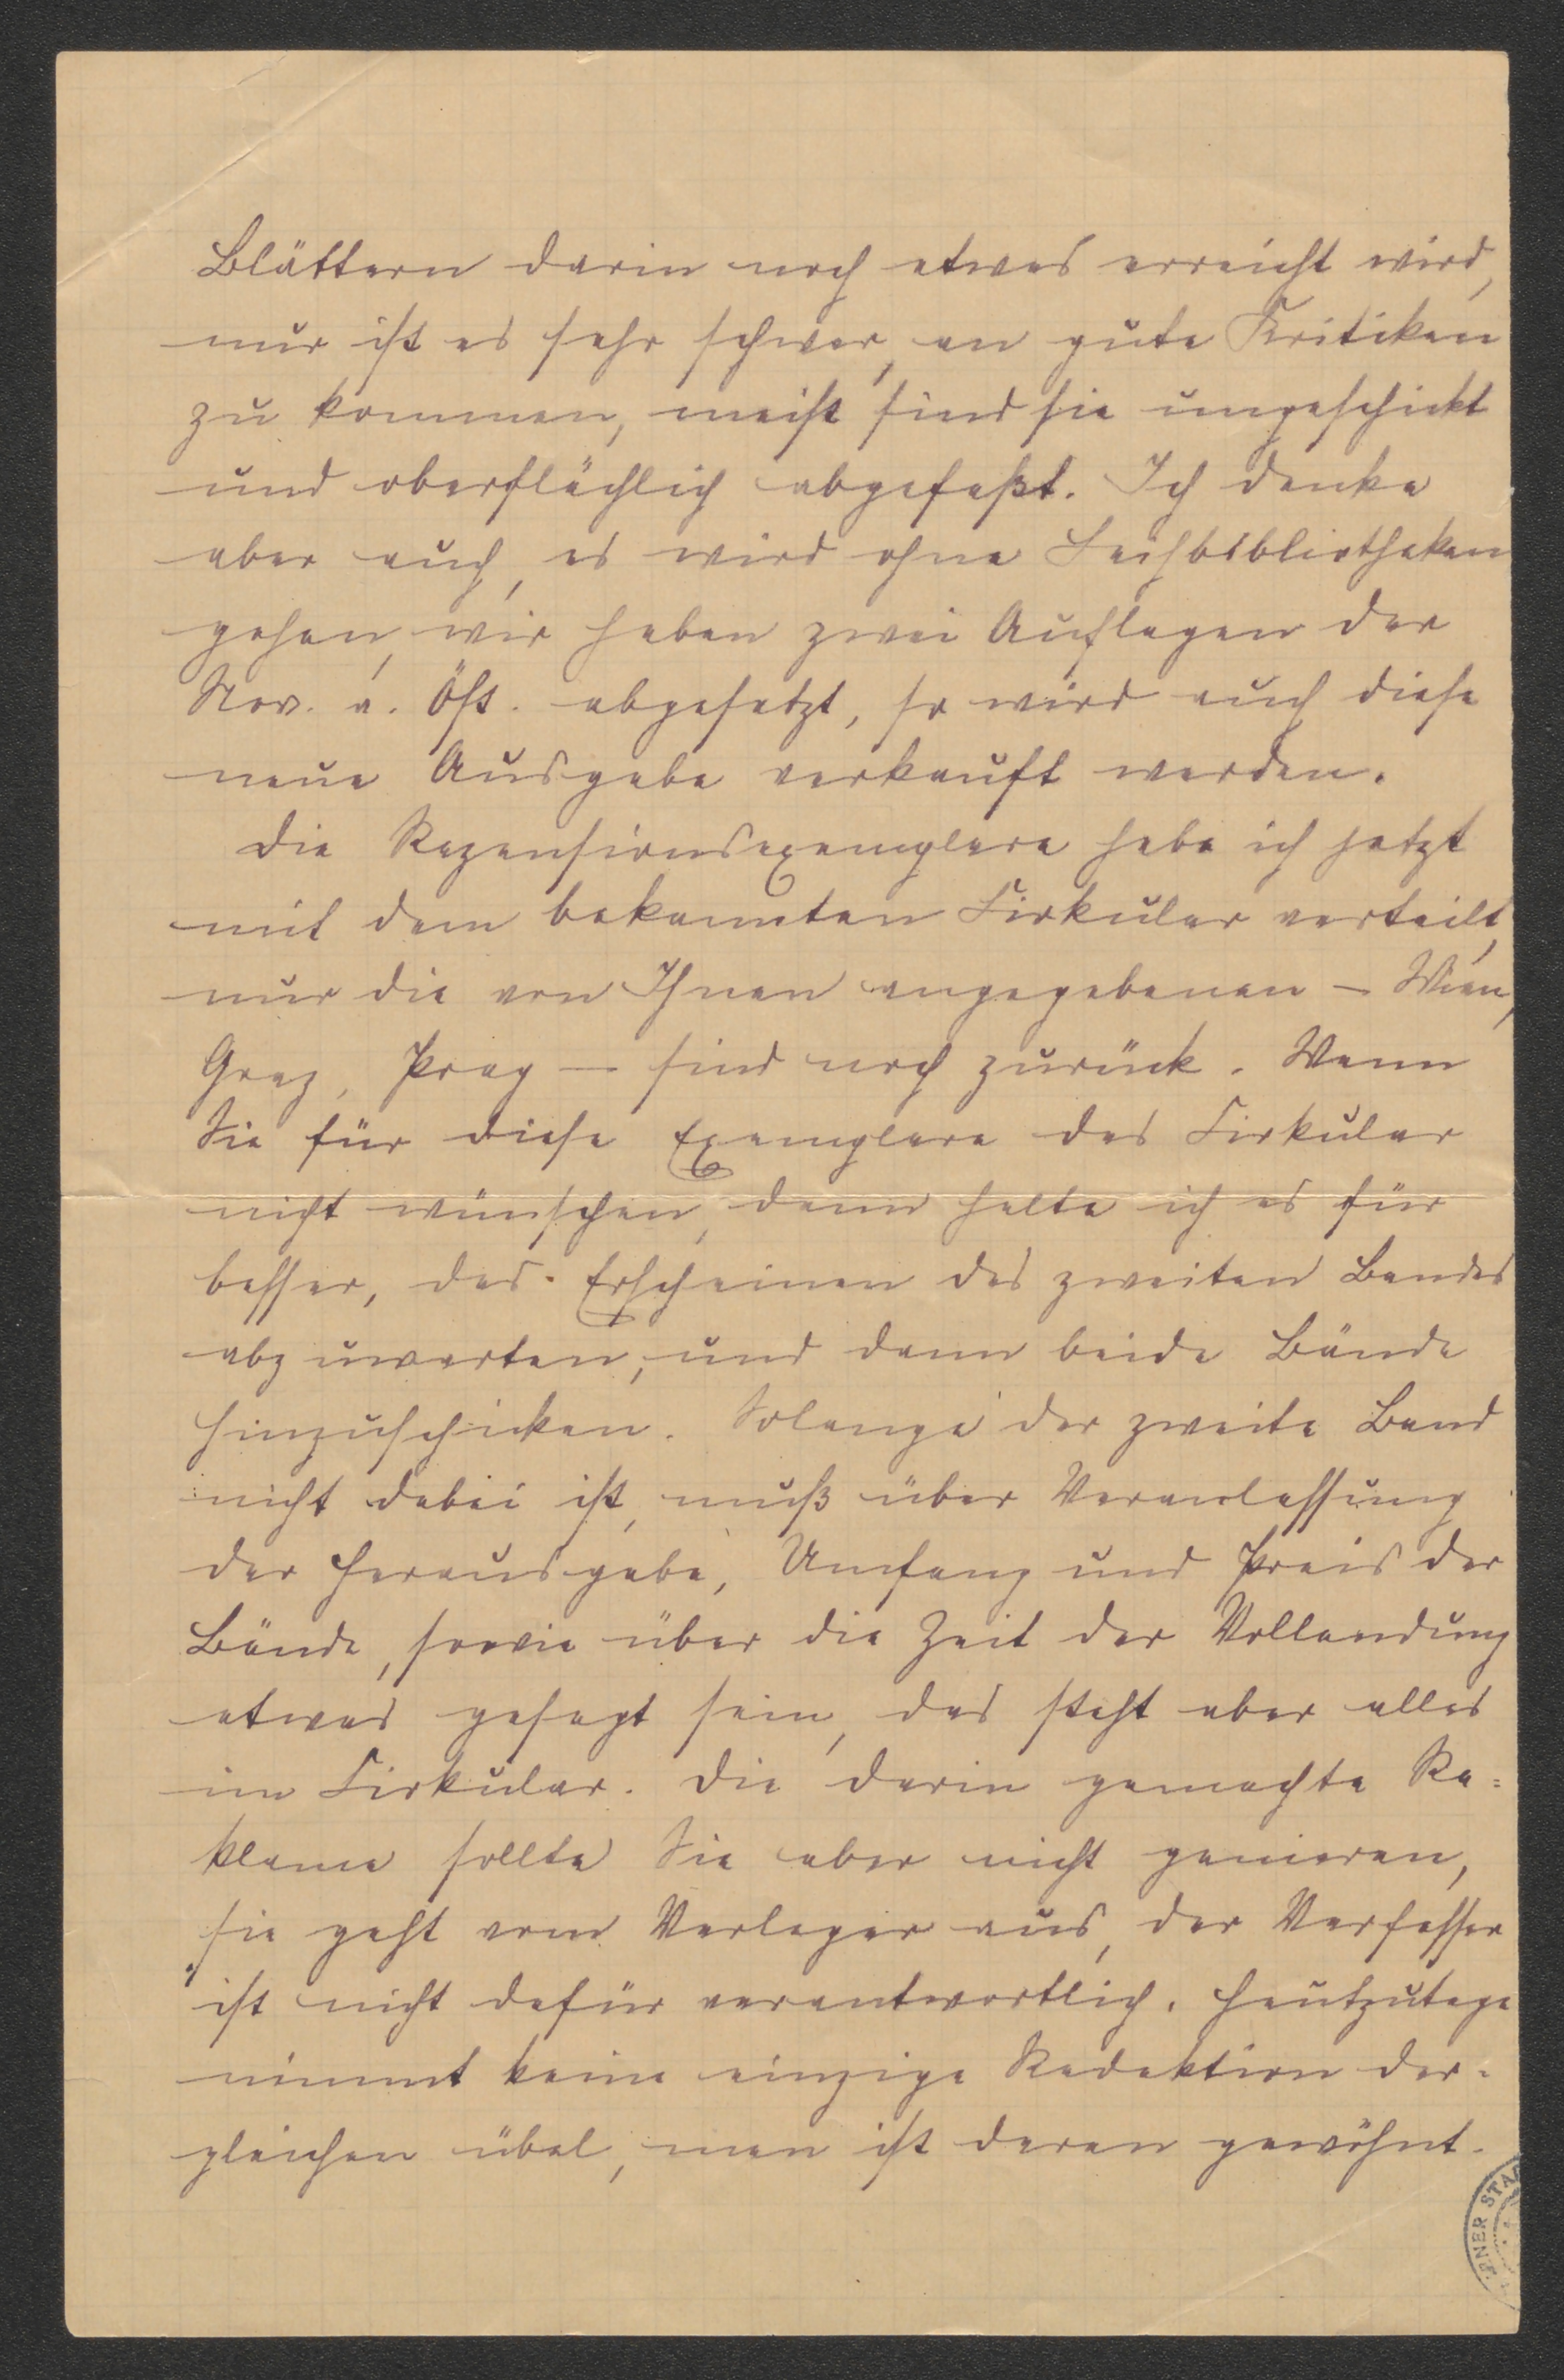 Blättern darin noch etwas erreicht wird,
nur ist es sehr schwer, an gute Kritiken
zu kommen, meist sind sie ungeschickt
und oberflächlich abgefaßt. Ich denke
aber auch, es wird ohne Leihbibliotheken
gehen, wir haben zwei Auflagen der
Nov. a. Öst. abgesetzt, so wird auch diese
neue Ausgabe verkauft werden.
Die Rezensionsexemplare habe ich jetzt
mit dem bekannten Cirkular verteilt,
nur die von Ihnen angegebenen – Wien,
Graz, Prag – sind noch zurück. Wenn
Sie für diese Exemplare das Cirkular
nicht wünschen, dann halte ich es für
besser, das Erscheinen des zweiten Bandes
abzuwarten, und dann beide Bände
hinzuschicken. Solange der zweite Band
nicht dabei ist, muß über Veranlassung
der Herausgabe, Umfang und Preis der
Bände, sowie über die Zeit der Vollendung
etwas gesagt sein, das steht aber alles
im Cirkular. Die darin gemachte Re=
klame sollte Sie aber nicht genieren,
sie geht vom Verleger aus, der Verfasser
ist nicht dafür verantwortlich. Heutzutage
nimmt keine einzige Redaktion der=
gleichen übel, man ist daran gewöhnt.